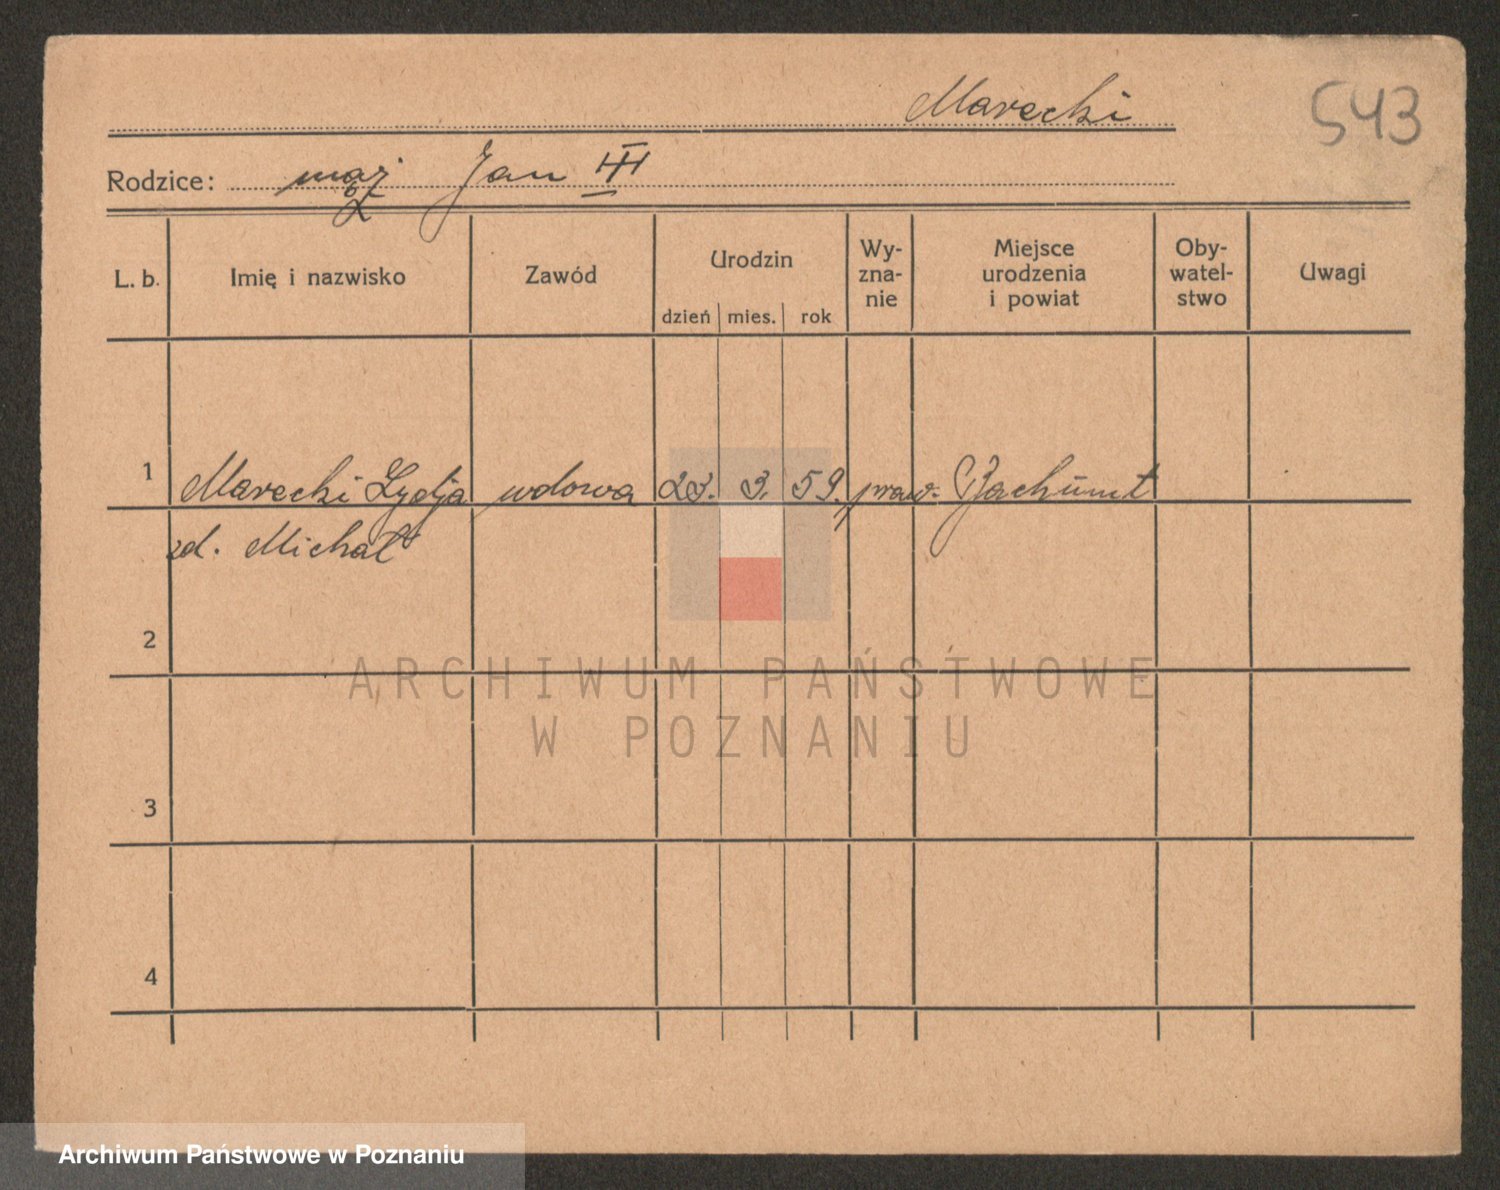 Marecki
543
Rodzice: mąż Jan III
L. b. Imię i nazwisko Zawód Urodzin dzień mies. rok Wy-zna-nie Miejsce urodzenia i powiat Oby-watel-stwo Uwagi
1 Marecki Lydja wdowa 23. 3. 59. praw. Bachumt
zd. Michał
2
ARCHIWUM PAŃSTWOWE
W POZNANIU
3
4
Archiwum Państwowe w Poznaniu